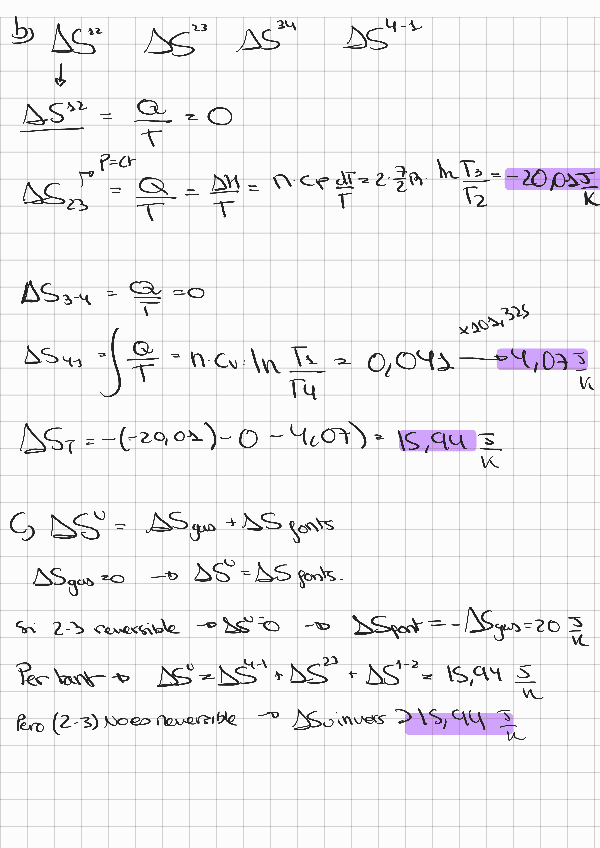 b) ΔS¹² ΔS²³ ΔS³⁴ ΔS⁴⁻¹
↓
ΔS¹² = Q/T = 0
P=ct
ΔS₂₃ = Q/T = ΔH/T = n·cp dT/T = 2·7/2 R · ln T₃/T₂ = -20,01 J/K
ΔS₃₋₄ = Q/T = 0
x101,325
ΔS₄₁ = ∫ Q/T = n·Cv·ln T₁/T₄ = 0,041 → 4,07 J/K
ΔS_T = -(-20,01) - 0 - 4,07) = 15,94 J/K
C) ΔSᵁ = ΔS gas + ΔS fonts
ΔS gas = 0 → ΔSᵁ = ΔS fonts.
Si 2-3 reversible → ΔSᵁ=0 → ΔS font = -ΔS gas = 20 J/K
Per tant → ΔSᵁ = ΔS⁴⁻¹ + ΔS²³ + ΔS¹⁻² = 15,94 J/K
Pero (2-3) No es reversible → ΔSuinvers > 15,94 J/K